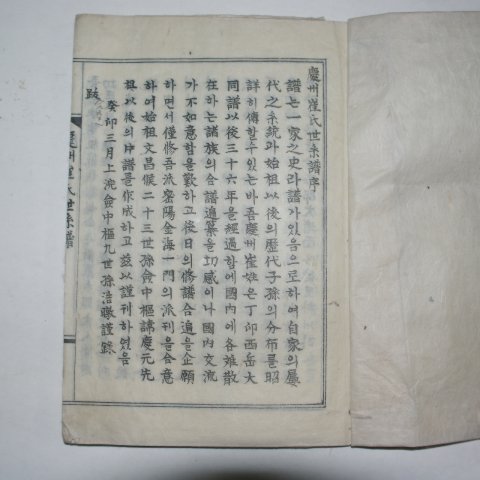 慶州崔氏世系譜序
譜는一家之史라譜가있음으로하여自家의屢
代之系統과始祖以後의歷代子孫의分布를昭
詳히傳할수있는바吾慶州崔族은丁卯西岳大
同譜以後三十六年을經過함에國內에各離散
在하는諸族의合譜追纂을切感이나國內交流
가不如意함을歎하고後日의修譜合追을企願
하면서僅修吾派密陽金海一門의派刊을合意
하여始祖文昌候二十三世孫僉中樞諱慶元先
祖以後의中譜를作成하고玆以謹刊하였음
癸卯三月上浣僉中樞九世孫浩 謹錄
跋
慶州崔氏世系譜